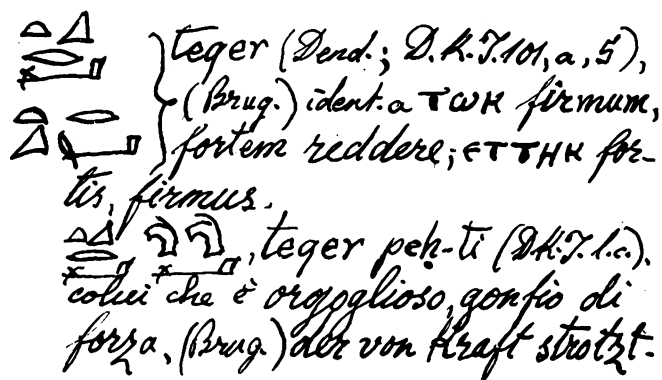 teger (Dend.; D.K.I. 101, a, 5),
(Brug.) ident. a ⲧⲱⲕ firmum,
fortem reddere; ⲉⲧⲧⲏⲕ for-
tis, firmus.
, teger peḥ-ti (D.K.I. l.c.).
colui che è orgoglioso, gonfio di
forza, (Brug.) der von Kraft strotzt.